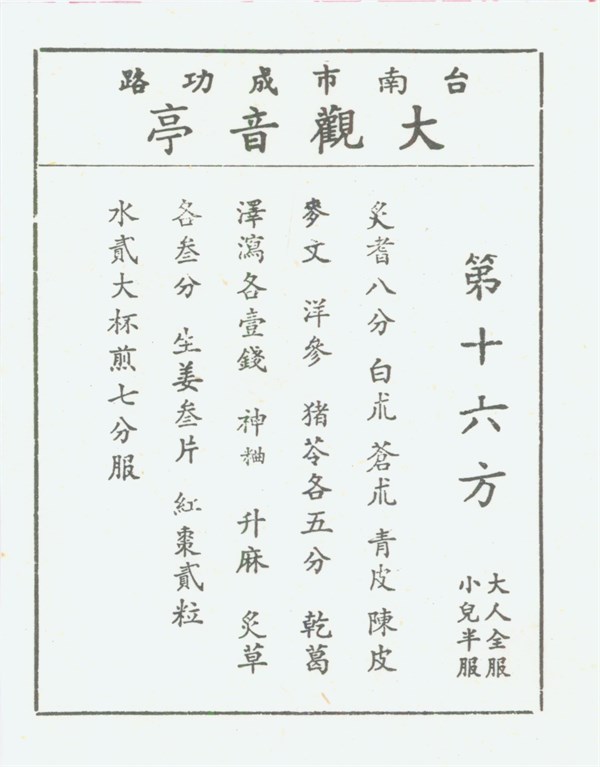 台南市成功路
大觀音亭
第十六方
大人全服
小兒半服
炙耆八分 白朮 蒼朮 青皮 陳皮
麥文 洋參 猪苓各五分 乾葛
澤瀉各壹錢 神粬 升麻 炙草
各叁分 生姜叁片 紅棗貳粒
水貳大杯煎七分服